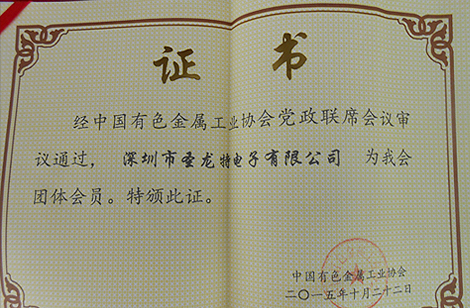 证书
经中国有色金属工业协会党政联席会议审
议通过，深圳市圣龙特电子有限公司 为我会
团体会员。特颁此证。
中国有色金属工业协会
二〇一五年十月二十二日